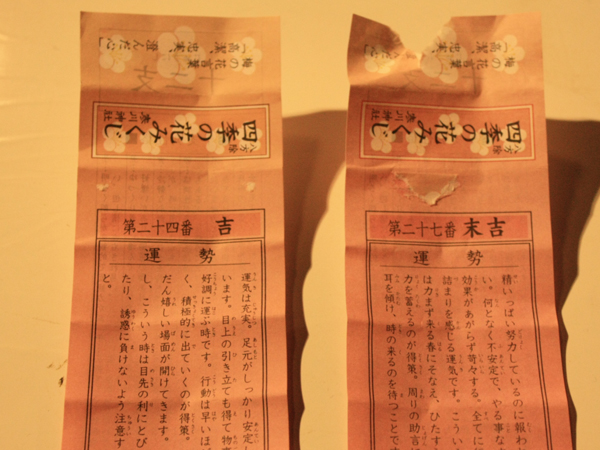 梅の花言葉
「高潔、忠実、澄んだ心」
八方除
四季の花みくじ
寒川神社
第二十四番 吉
運勢
運気は充実。足元がしっかり安定し
います。目上の引き立ても得て物事
好調に運ぶ時です。行動は早いほ
く、積極的に出ていくのが得策。
だん嬉しい場面が開けてきます。
し、こういう時は目先の利にとび
たり、誘惑に負けないよう注意す
と。
梅の花言葉
「高潔、忠実、澄んだ心」
八方除
四季の花みくじ
寒川神社
第二十七番 末吉
運勢
精いっぱい努力しているのに報わ
い。何となく不安定で、やる事な
効果があがらず苛々する。全てに
詰まりを感じる運気です。こうい
は力まず来る春にそなえ、ひたす
力を蓄えるのが得策。周りの助言
耳を傾け、時の来るのを待つことで